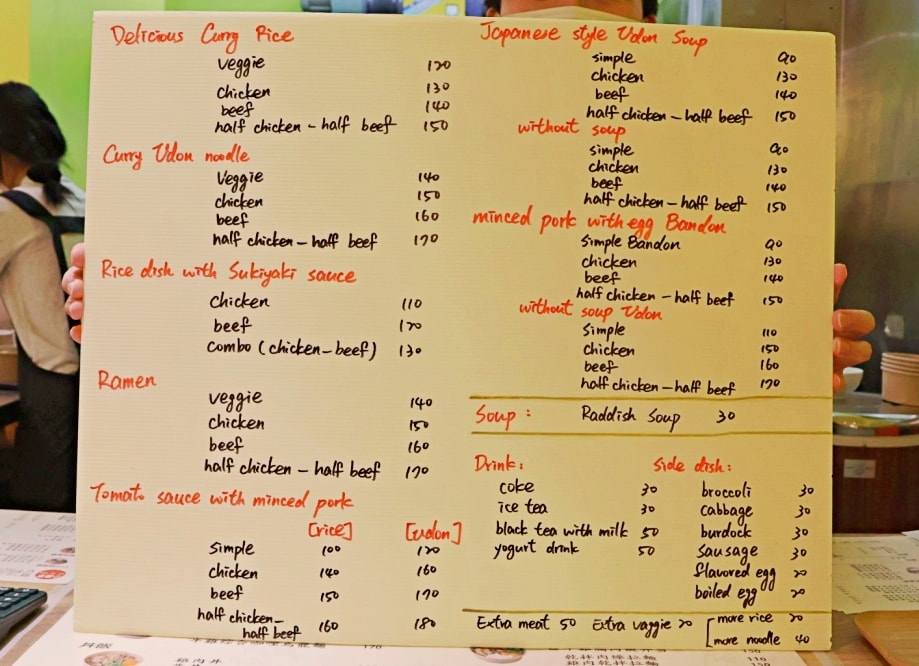 Delicious Curry Rice
veggie 120
chicken 130
beef 140
half chicken - half beef 150
Curry Udon noodle
Veggie 140
chicken 150
beef 160
half chicken - half beef 170
Rice dish with Sukiyaki sauce
chicken 110
beef 120
combo (chicken - beef) 130
Ramen
veggie 140
chicken 150
beef 160
half chicken - half beef 170
Tomato sauce with minced pork
[rice] [udon]
simple 100 120
chicken 140 160
beef 150 170
half chicken -
half beef 160 180
Japanese style Udon Soup
simple 90
chicken 130
beef 140
half chicken - half beef 150
without soup
simple 90
chicken 130
beef 140
half chicken - half beef 150
minced pork with egg Bandon
simple Bandon 90
chicken 130
beef 140
half chicken - half beef 150
without soup Udon
simple 110
chicken 150
beef 160
half chicken - half beef 170
Soup : Raddish Soup 30
Drink :
coke 30
ice tea 30
black tea with milk 50
yogurt drink 50
Side dish :
broccoli 30
cabbage 30
burdock 30
sausage 30
flavored egg 20
boiled egg 20
Extra meat 50 Extra vaggie 20
more rice 20
more noodle 40